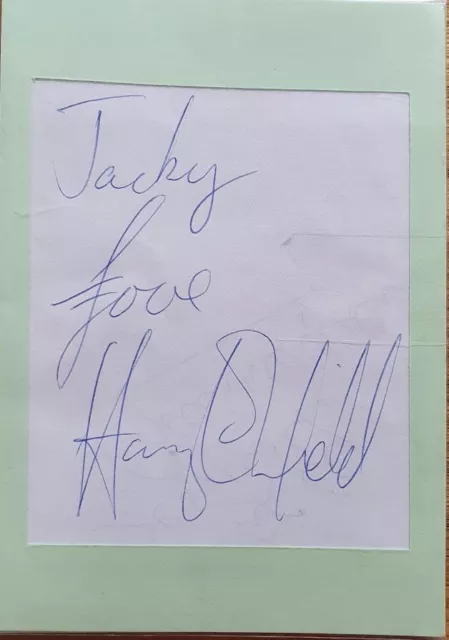 Jacky
Love
Harry Enfield